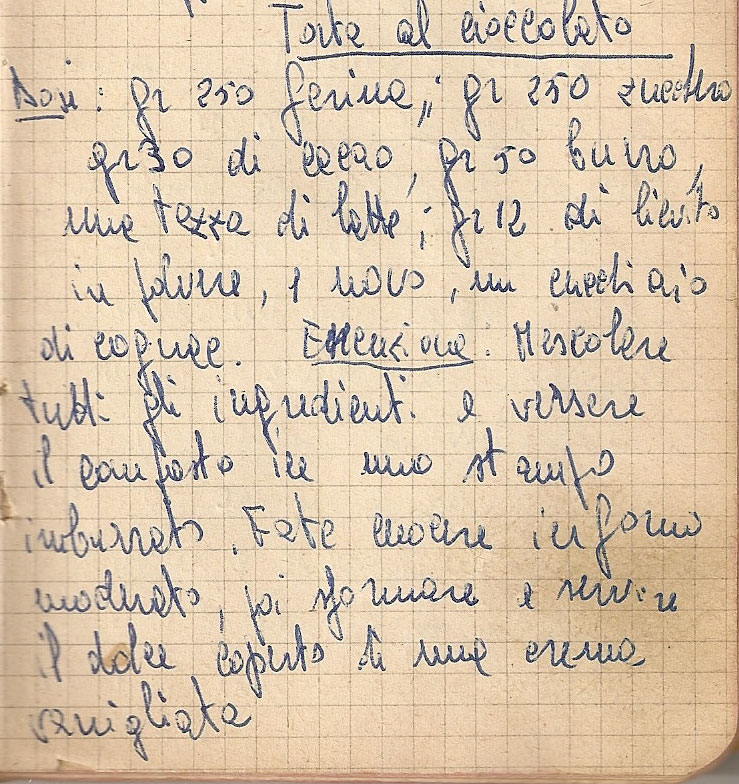 Torta al cioccolato
Dosi: gr 250 farina; gr 250 zucchero
gr 30 di cacao, gr 50 burro,
una tazza di latte; gr 12 di lievito
in polvere, 1 uovo, un cucchiaio
di cognac. Esecuzione: Mescolare
tutti gli ingredienti e versare
il composto in uno stampo
imburrato. Fate cuocere in forno
moderato, poi sformare e servire
il dolce coperto di una crema
vanigliata